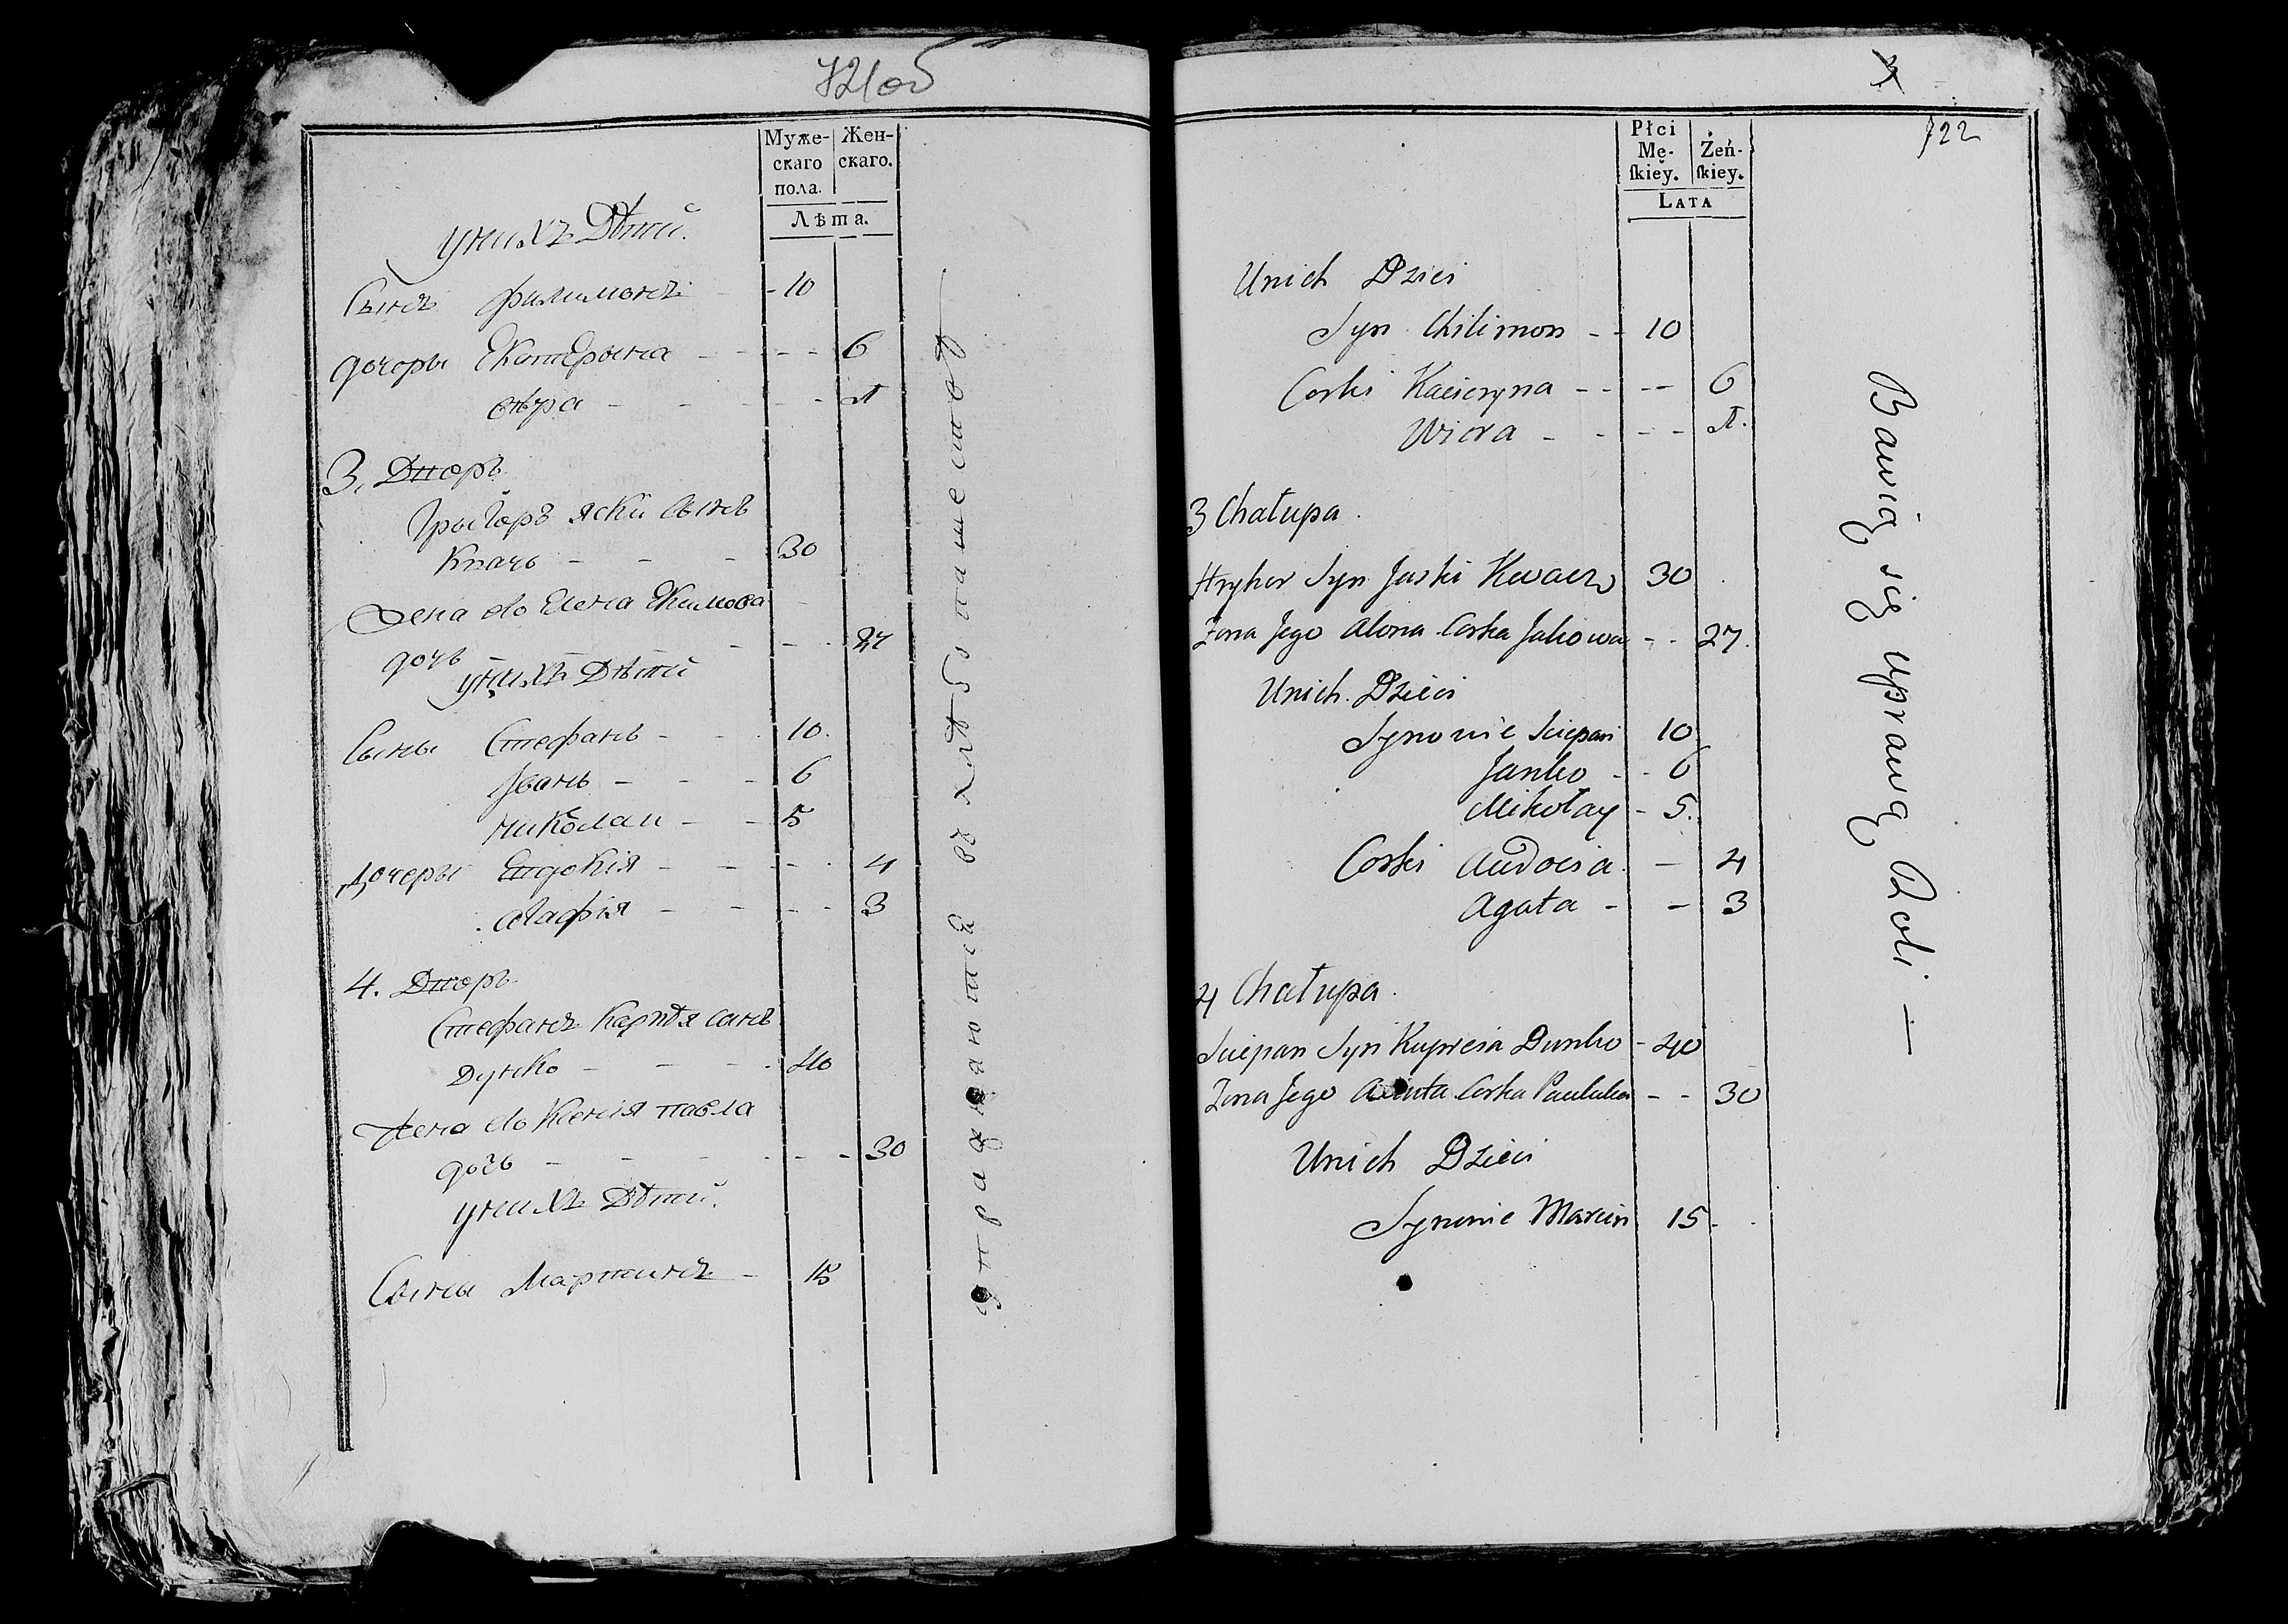 721об
Муже-
скаго
пола.
Жен-
скаго.
Лѣта.
унихъ Дѣтей.
Сынъ Филимонъ - 10
дочеры Екатерына - - - - 6
вѣра - - - - 1
3, Дворъ
Грыгоръ яски сынъ
Квачъ - - - 30
Жена его Елена Екимова
дочь - - - - 27
унихъ Дѣтей
Сыны Стефанъ - - 10.
Иванъ - - - 6
Николаи - - 5
дочеры Евдокія - - - - 4
агафія - - - - 3
4. Дворъ
Стефанъ сынъ
Дунко - - - 40
Жена его Ксенія павла
дочь - - - - - 30
унихъ Дѣтей.
Сыны Мартинъ - 15
упражняются въ хлѣбопашествѣ
722
Płci
Mę-
skiey.
Żeń-
skiey.
LATA
Unich Dzieci
Syn Chilimon - - 10
Corki Kacieryna - - -- 6
Wiera - - - - 1.
3 Chałupa.
Hryhor Syn Jaski Kwacz 30
Zona Jego Alona Corka Jakowa - - 27.
Unich Dzieci
Synowie Sciepan 10
Janko - - 6
Mikołay - 5.
Corki Audocia - 4
Agata - - 3
4 Chałupa.
Sciepan Syn Kupreia Dunko - 40
Zona Jego Corka Pauluka - - 30
Unich Dzieci
Synowie Marcin 15.
Bawią się uprawą Roli —